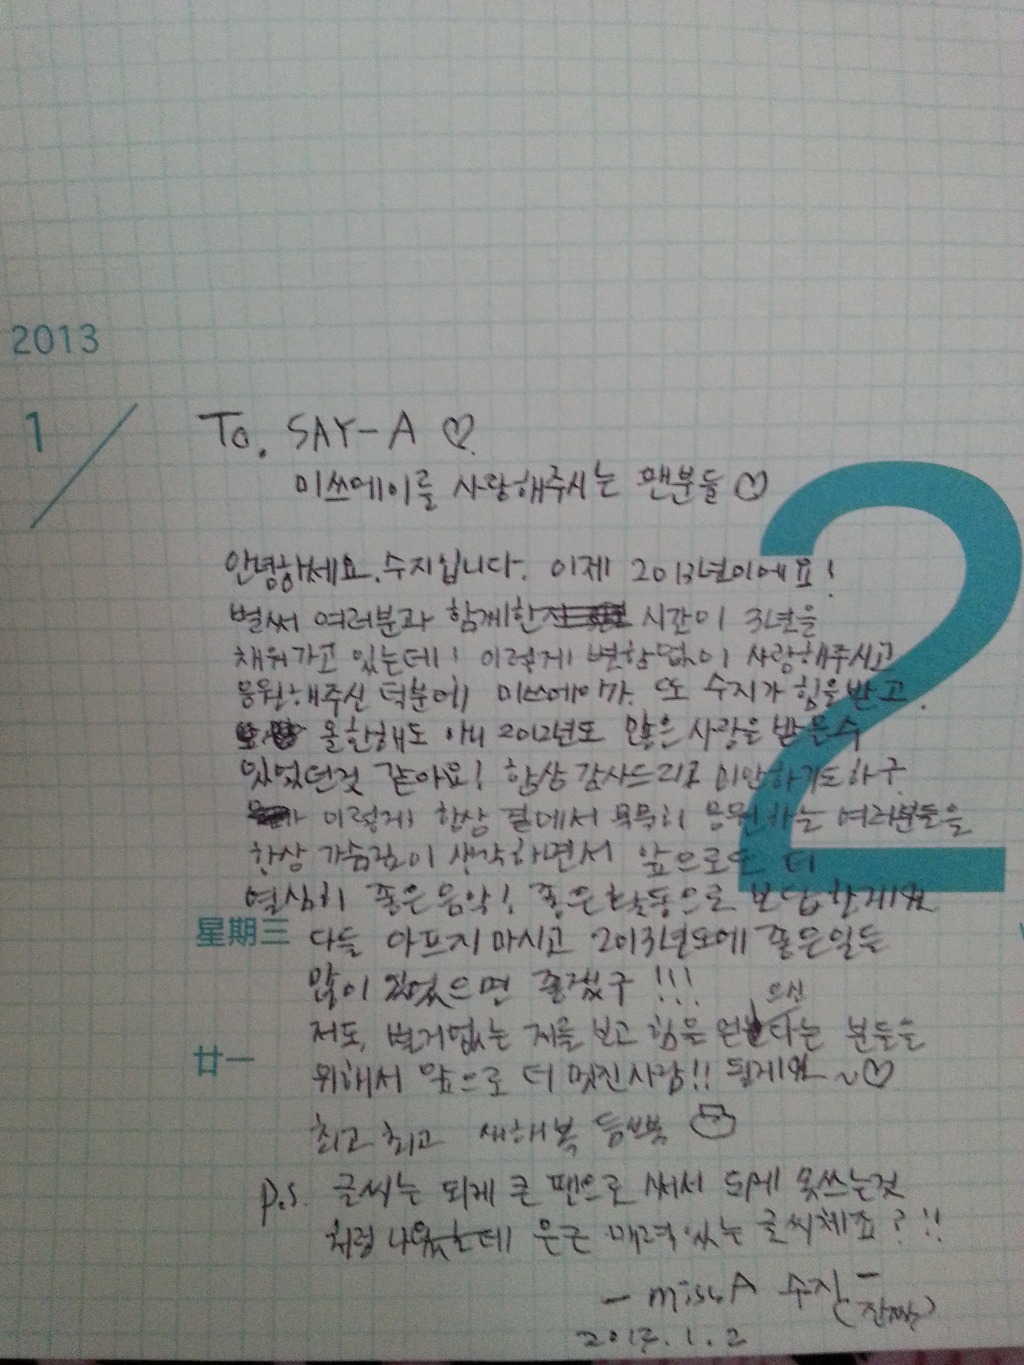 2013
1
2
To. SAY-A ♡
미쓰에이를 사랑해주시는 팬분들 ♡
안녕하세요. 수지입니다. 이제 2013년이에요!
벌써 여러분과 함께한 시간이 3년을
채워가고 있는데! 이렇게 변함없이 사랑해주시고
응원해주신 덕분에 미쓰에이가. 또 수지가 힘을 받고.
올한해도 아니 2012년도 많은 사랑을 받을수
있었던것 같아요! 항상 감사드리고 미안하기도하구
이렇게 항상 곁에서 묵묵히 응원하는 여러분들을
항상 가슴깊이 생각하면서 앞으로도 더
열심히 좋은 음악! 좋은 활동으로 보답할게요
星期三
다들 아프지 마시고 2013년도에 좋은일들
많이 있었으면 좋겠구 !!!
으신
저도, 별거없는 저를 보고 힘을 얻는다는 분들을
廿一
위해서 앞으로 더 멋진사람!! 될게요 ~♡
최고 최고 새해복 듬뿍
p.s. 글씨는 되게 큰 펜으로 써서 되게 못쓰는것
처럼 나왔는데 은근 매력있는 글씨체죠?!!
- miss A 수지 -
(진짜)
2013.1.2